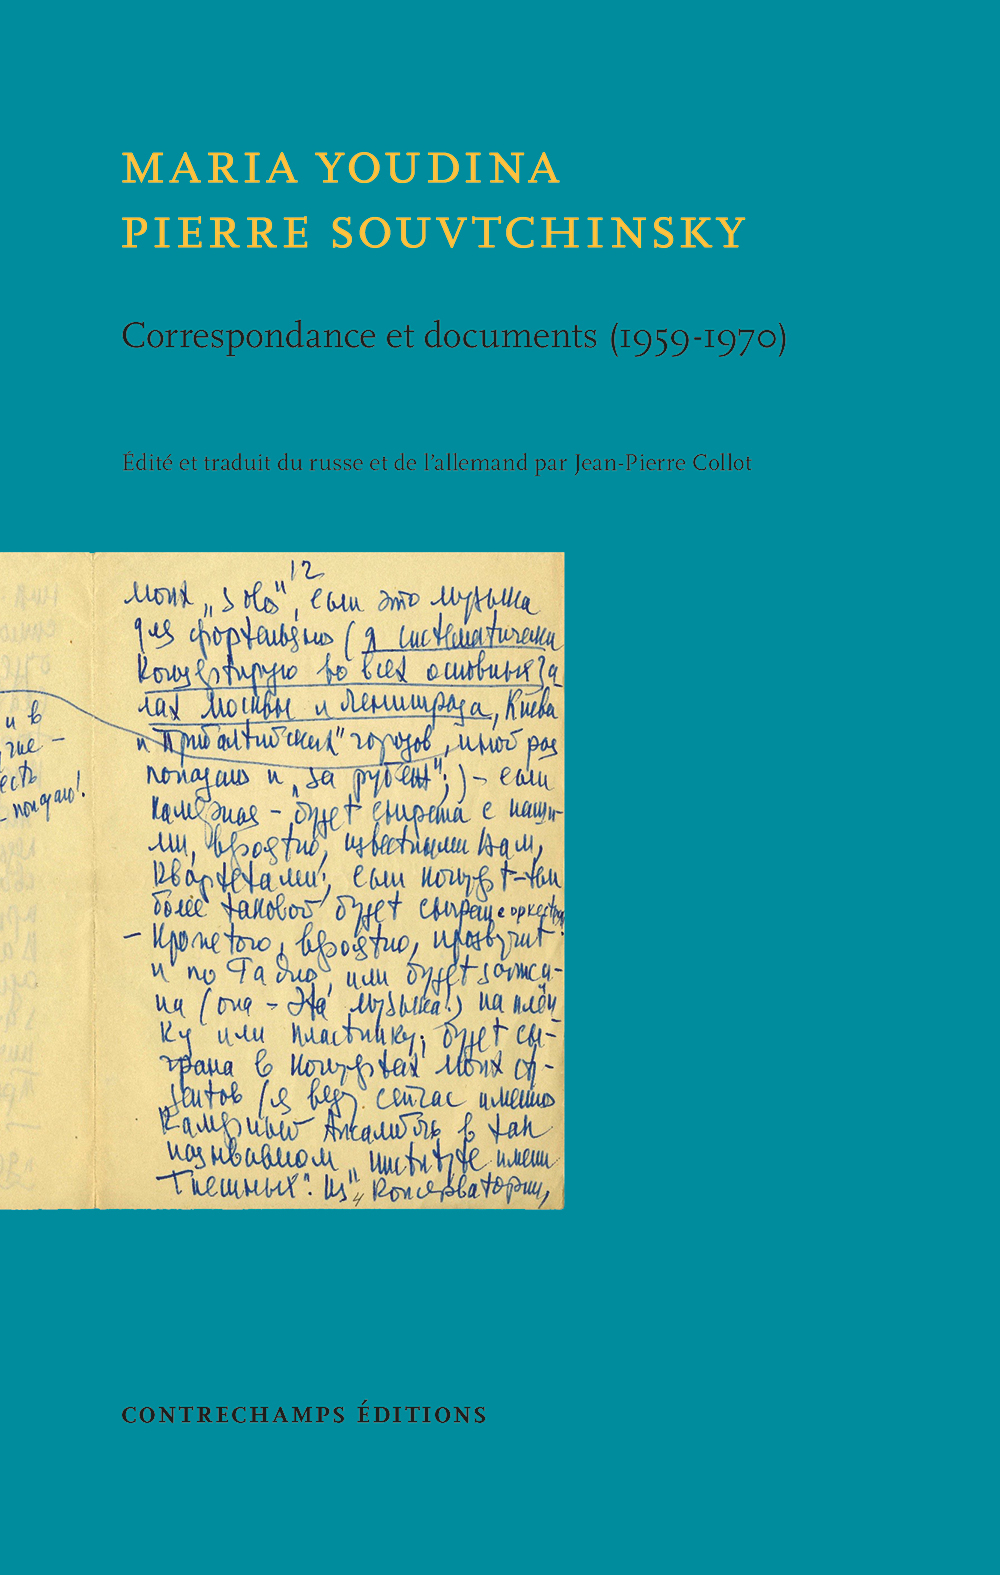 MARIA YOUDINA
PIERRE SOUVTCHINSKY
Correspondance et documents (1959-1970)
Édité et traduit du russe et de l’allemand par Jean-Pierre Collot
12
моих „solo“, если это музыка
для фортепьяно (я систематически
концертирую во всех основных за
лах Москвы и Ленинграда, Киева
и „Прибалтийских“ городов, иной раз
попадаю и „за рубеж“;) – если
камерная – будет сыграна с наши-
ми, вероятно, известными Вам,
Квартетами; если концерт – тем
более таковой будет сыгран с оркестром!
– Кроме того, вероятно, прозвучит
и по Радио, или будет записа-
на (она – эта музыка!) на плён-
ку или пластинку; будет сы-
грана в концертах моих сту-
дентов (я веду сейчас именно
Камерный Ансамбль в так
называемом „институте имени
Гнесиных“. Из „Консерватории,
и в
есть
попадаю!
CONTRECHAMPS ÉDITIONS